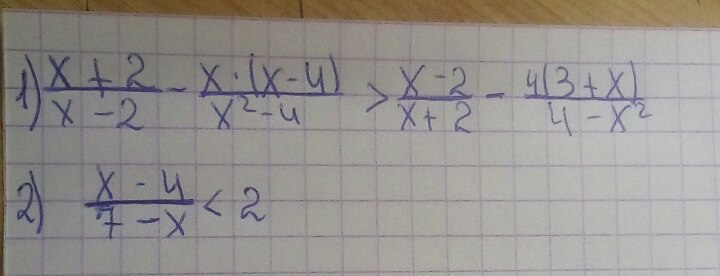 1) \frac{x+2}{x-2} - \frac{x \cdot (x-4)}{x^2-4} > \frac{x-2}{x+2} - \frac{4(3+x)}{4-x^2}
2) \frac{x-4}{7-x} < 2